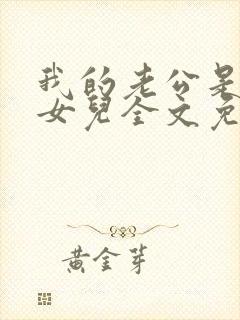 我的老公是
女兒全文免
黃金芽